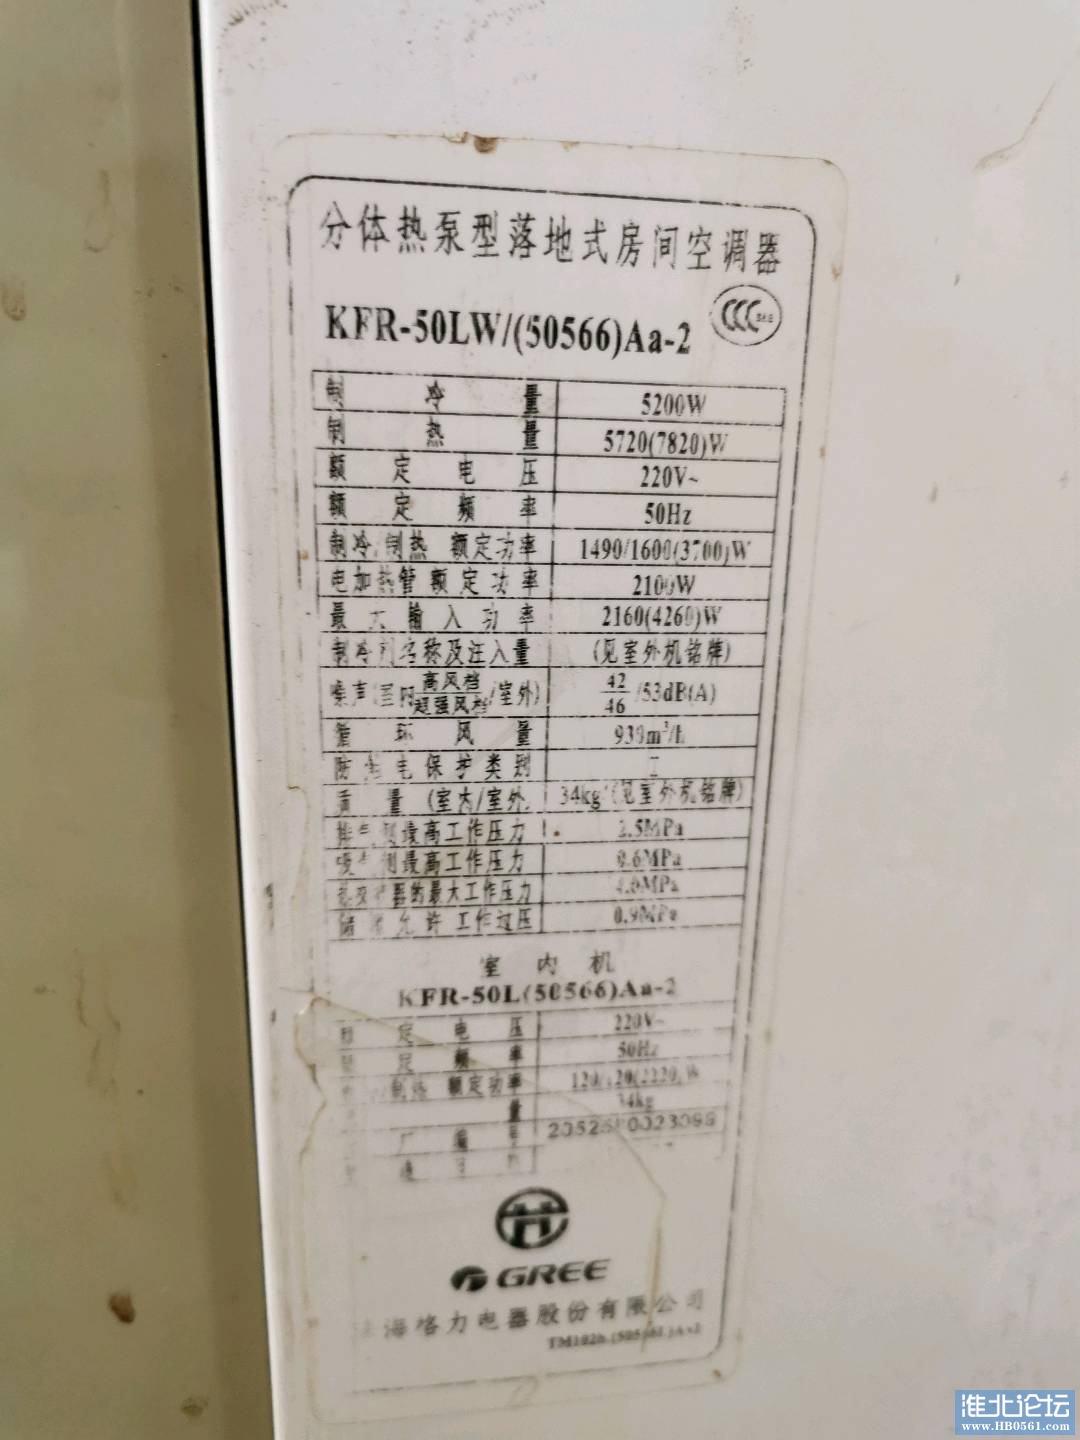 分体热泵型落地式房间空调器
KFR-50LW/(50566)Aa-2
制冷量 5200W
制热量 5720(7820)W
额定电压 220V~
额定频率 50Hz
制冷/制热 额定功率 1490/1600(3700)W
电加热管额定功率 2100W
最大输入功率 2160(4260)W
制冷剂名称及注入量 (见室外机铭牌)
噪声(室内高风档/超强风档/室外) 42/46/53dB(A)
循环风量 930m³/h
防触电保护类别
质量(室内/室外) 34kg/(见室外机铭牌)
排气侧最高工作压力 2.5MPa
吸气侧最高工作压力 0.6MPa
热交换器的最大工作压力 4.0MPa
允许工作过压 0.9MPa
室内机
KFR-50L(50566)Aa-2
额定电压 220V~
额定频率 50Hz
制热 额定功率
量 34kg
编号
GREE
珠海格力电器股份有限公司
淮北论坛
www.HB0561.com